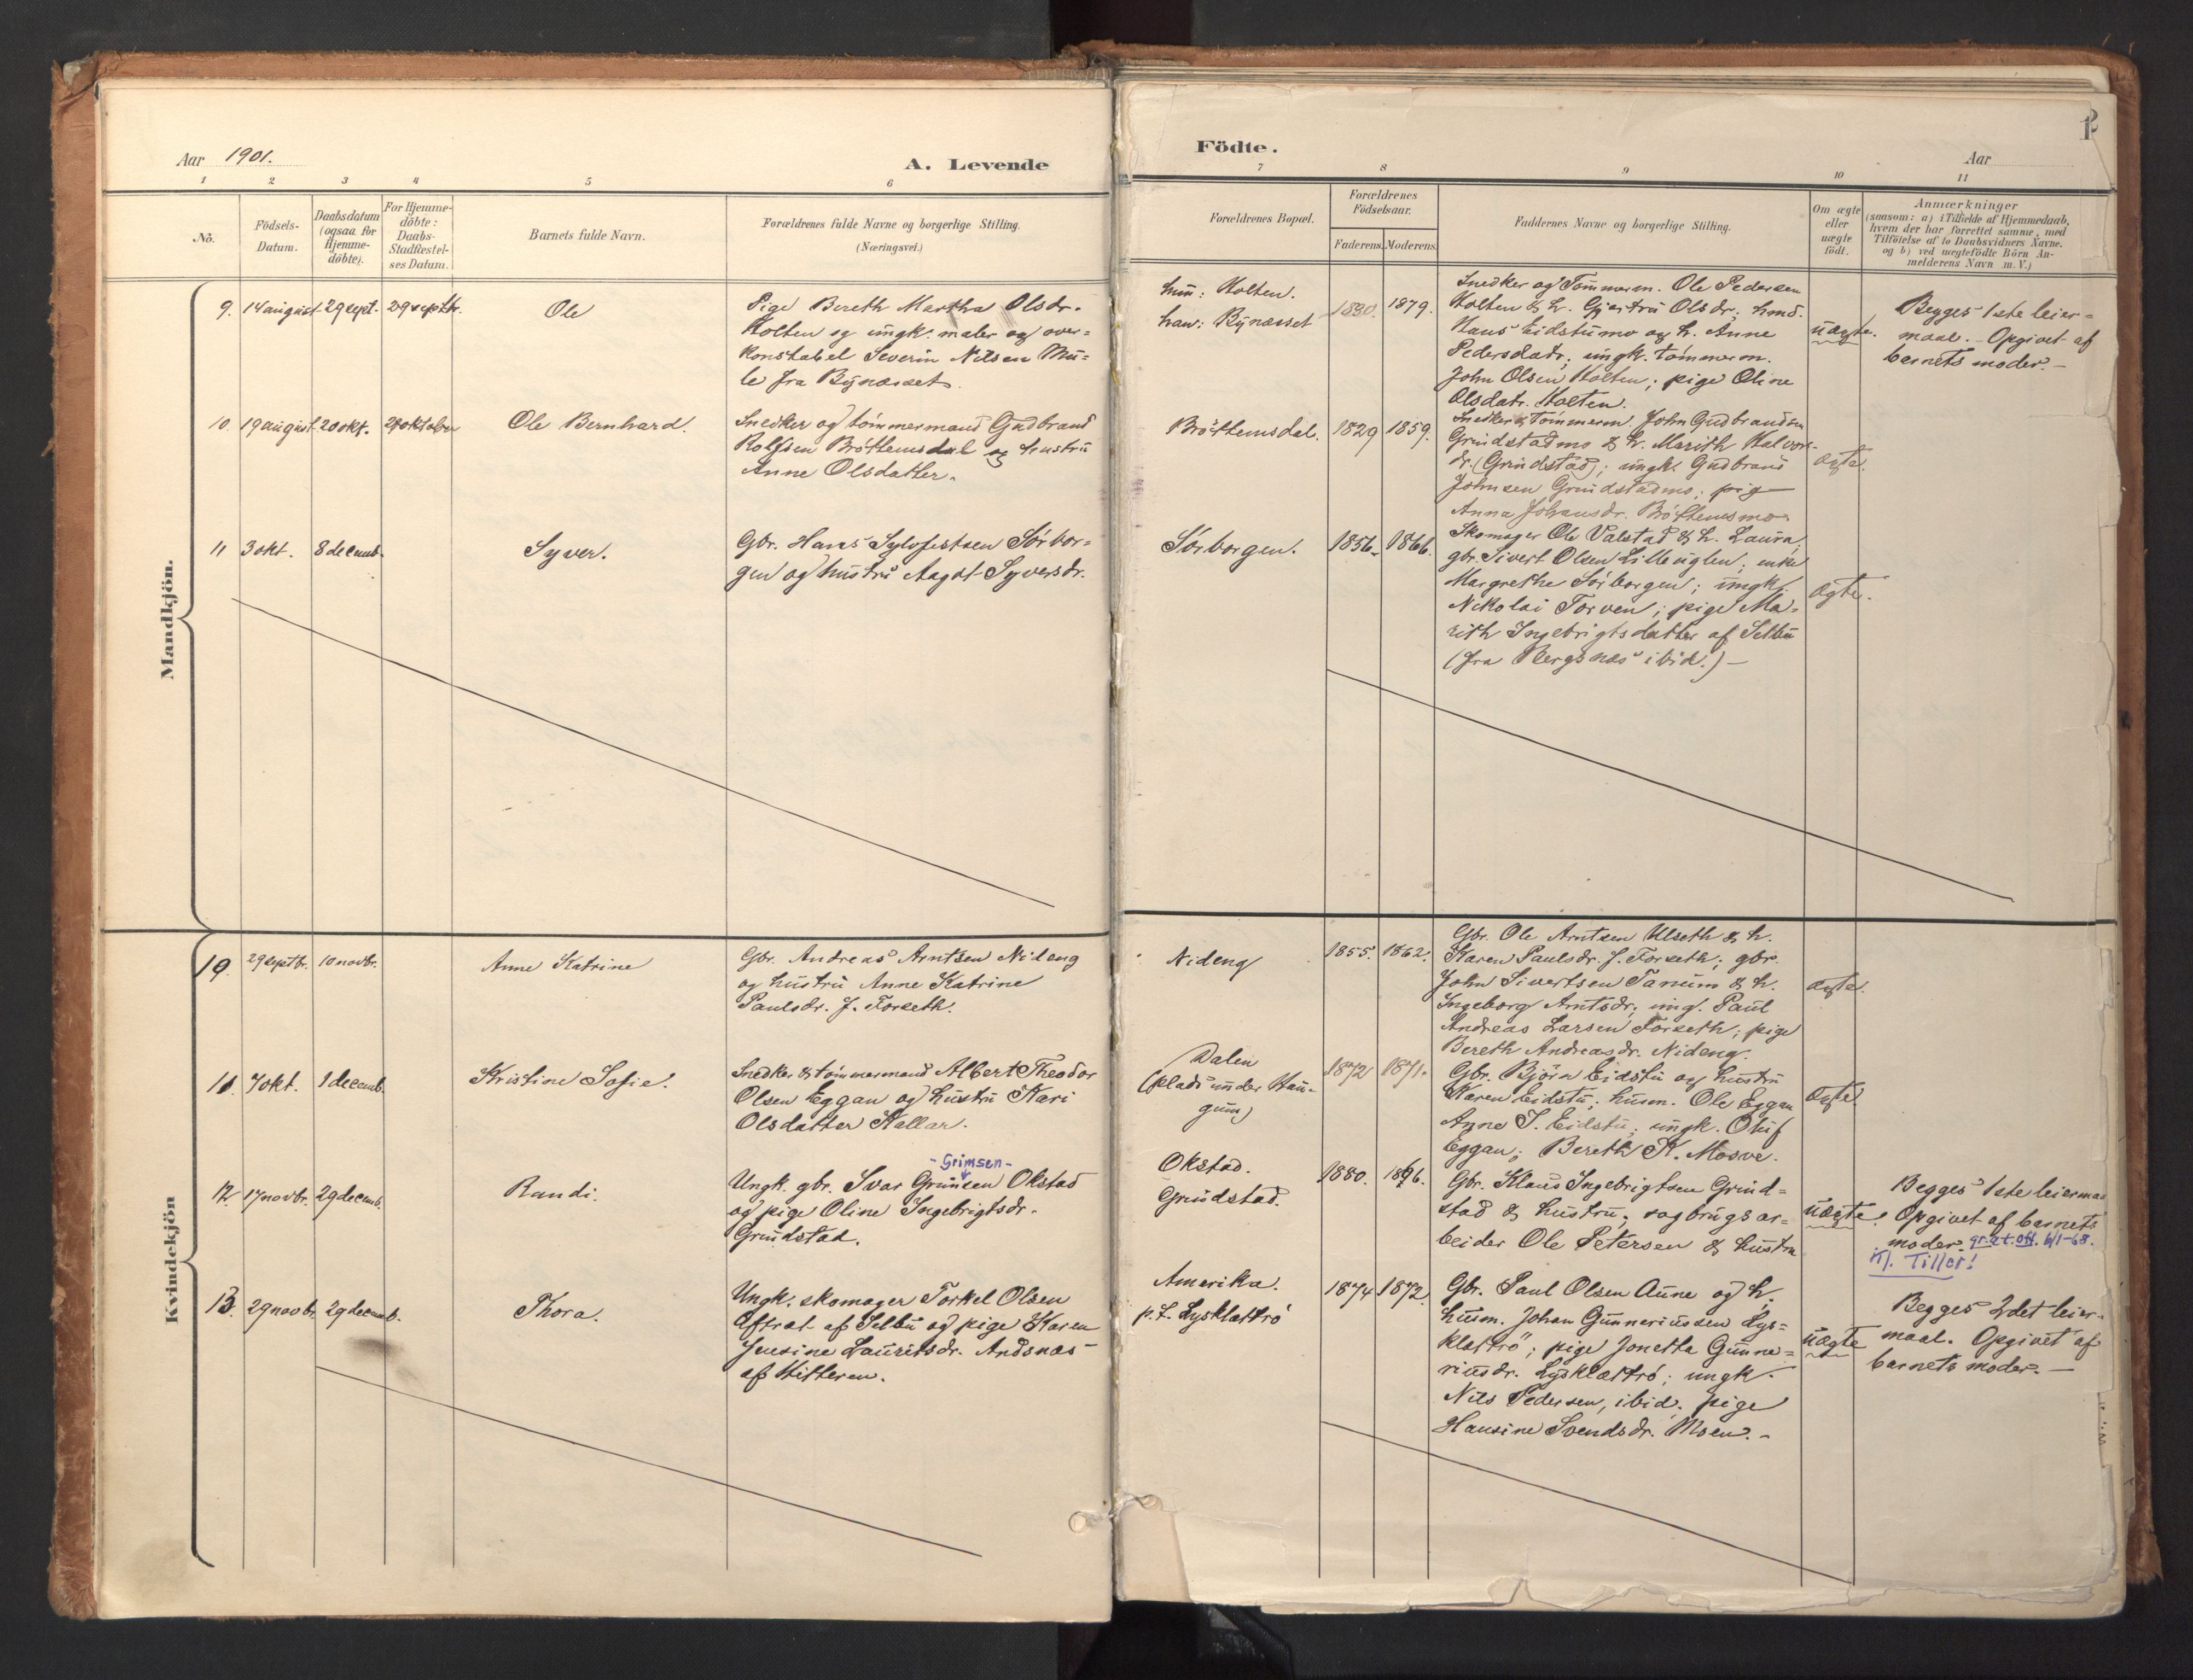 Aar 1901.
A. Levende
1 2 3 4 5 6
No.
Födsels-
Datum.
Daabsdatum
(ogsaa for
Hjemme-
döbte).
For Hjemme-
döbte:
Daabs-
Stadfæstel-
ses Datum.
Barnets fulde Navn.
Forældrenes fulde Navne og borgerlige Stilling.
(Næringsvei.)
Mandkjön.
9. 14 august 29 sept. 29 septbr. Ole
Pige Bereth Martha Olsdr.
Holten og ungk. maler og over-
konstabel Severin Nilsen Mu-
le fra Bynæsset.
10. 19 august 20 okt. 20 oktober Ole Bernhard.
Snedker og tömmermand Gudbrand
Rolfsen Bröttemsdal og hustru
Anne Olsdatter.
11 3 okt. 8 decemb. Syver.
Gbr. Hans Sylvestsen Sörbor-
gen og hustru Aagot Syversdr.
Kvindekjön
10. 29 septbr. 10 novbr. Anne Katrine
Gbr. Andreas Arntsen Nideng
og hustru Anne Katrine
Paulsdr. f. Forseth.
11. 7 okt. 1 decemb. Kristine Sofie.
Snedker & tömmermand Albert Theodor
Olsen Eggan og hustru Kari
Olsdatter Kallar.
- Grimsen -
12. 17 novbr. 29 decemb. Randi.
Ungk. gbr. Ivar Grimsen Okstad
og pige Oline Ingebrigtsdr.
Grindstad.
13. 29 novbr. 29 decemb. Thora.
Ungk. skomager Torkel Olsen
Aftret af Selbu og pige Karen
Jensine Lauritsdr. Andsnæs
af Hitteren.
Födte.
Aar
7 8 9 10 11
Forældrenes Bopæl.
Forældrenes
Födselsaar.
Faderens. Moderens.
Faddernes Navne og borgerlige Stilling.
Om ægte
eller
uægte
födt.
Anmærkninger
(saasom: a) i Tilfælde af Hjemmedaab,
hvem der har forrettet samme, med
Tilföielse af to Daabsvidners Navne.
og b) ved uægtefödte Börn An-
melderens Navn m. V.)
hun: Holten.
han: Bynæsset
1880. 1879.
Snedker og Tömmerm. Ole Pedersen
Holten & h. Gjertru Olsdr; hmd.
Hans Eidstumo og h. Anne
Pedersdatr; ungk. tömmerm.
John Olsen Holten; pige Oline
Olsdatr. Holten.
uægte.
Begges 1ste leier-
maal. Opgivet af
barnets moder. –
Bröttemsdal. 1829 1859.
Snedker & Tömmerm. John Gudbrandsen
Grindstadmo & h. Marith Halvor-
dr. (Grindstad); ungk. Gudbrand
Johnsen Grindstadmo; pige
Anna Johansdr. Bröttemsmo.
ægte.
Sörborgen. 1856. 1866.
Skomager Ole Valstad & h. Laura,
gbr. Sivert Olsen Lilleuglen; enke
Margrethe Sörborgen; ungk.
Nikolai Torven; pige Ma-
rith Ingebrigtsdatter af Selbu
(fra Bergsnæs ibid.) –
ægte.
Nideng 1855. 1862.
Gbr. Ole Arntsen Ulseth & h.
Karen Paulsdr. f. Forseth; gbr.
John Sivertsen Tanum & h.
Ingeborg Arntsdr; ung. Paul
Andreas Larsen Forseth; pige
Bereth Andreasdr. Nideng.
ægte.
Dalen
(plads under Hau-
gum)
1872 1871.
Gbr. Björn Eidstu og hustru
Karen Eidstu; husm. Ole Eggan,
Anne I. Eidstu; ungk. Oluf
Eggan; Bereth K. Mosve.
ægte.
Okstad.
Grindstad.
1880. 1896.
Gbr. Klaus Ingebrigtsen Grind-
stad & hustru; sagbrugsar-
beider Ole Petersen & hustru
uægte.
Begges 1ste leiermaal
Opgivet af barnets
moder. gr. at. off. 6/1-68.
Kl. Tiller!
Amerika.
p.t. Lysklættrö
1874 1872.
Gbr. Paul Olsen Aune og h,
husm. Johan Gunneriussen Lys-
klættrö; pige Jonetta Gunne-
riusdr. Lysklættrö; ungk.
Nils Pedersen, ibid; pige
Hansine Svendsdr. Moen. –
uægte
Begges 2det leier-
maal. Opgivet af
barnets moder. –